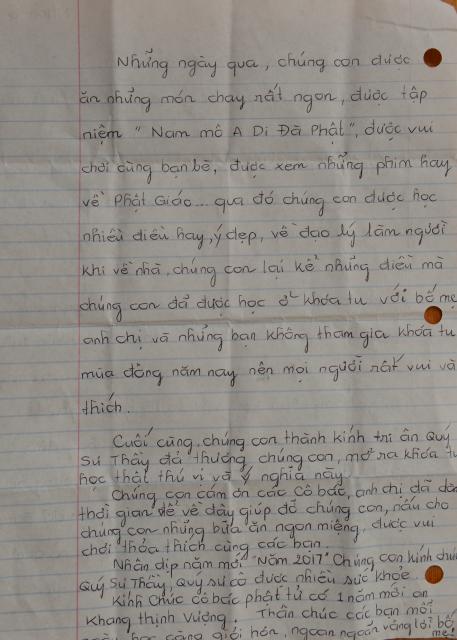 Những ngày qua, chúng con được
ăn những món chay rất ngon, được tập
niệm "Nam mô A Di Đà Phật", được vui
chơi cùng bạn bè, được xem những phim hay
về Phật Giáo... qua đó chúng con được học
nhiều điều hay, ý đẹp, về đạo lý làm người
khi về nhà, chúng con lại kể những điều mà
chúng con đã được học ở khóa tu với bố mẹ
anh chị và những bạn không tham gia khóa tu
mùa đông năm nay nên mọi người rất vui và
thích.
Cuối cùng, chúng con thành kính tri ân Quý
Sư Thầy đã thương chúng con, mở ra khóa tu
học thật thú vị và ý nghĩa này
Chúng con cảm ơn các cô bác, anh chị đã
thời gian để về đây giúp đỡ chúng con, nấu cho
chúng con những bữa ăn ngon miệng, được vui
chơi thỏa thích cùng các bạn.
Nhân dịp năm mới "Năm 2017" Chúng con kính
Quý Sư Thầy, Quý sư cô được nhiều sức khỏe.
Kính Chúc cô bác phật tử có 1 năm mới an
Khang thịnh vượng. Thân chúc các bạn mới
học càng giỏi hơn, ngoan ngoãn vâng lời bố
mẹ.